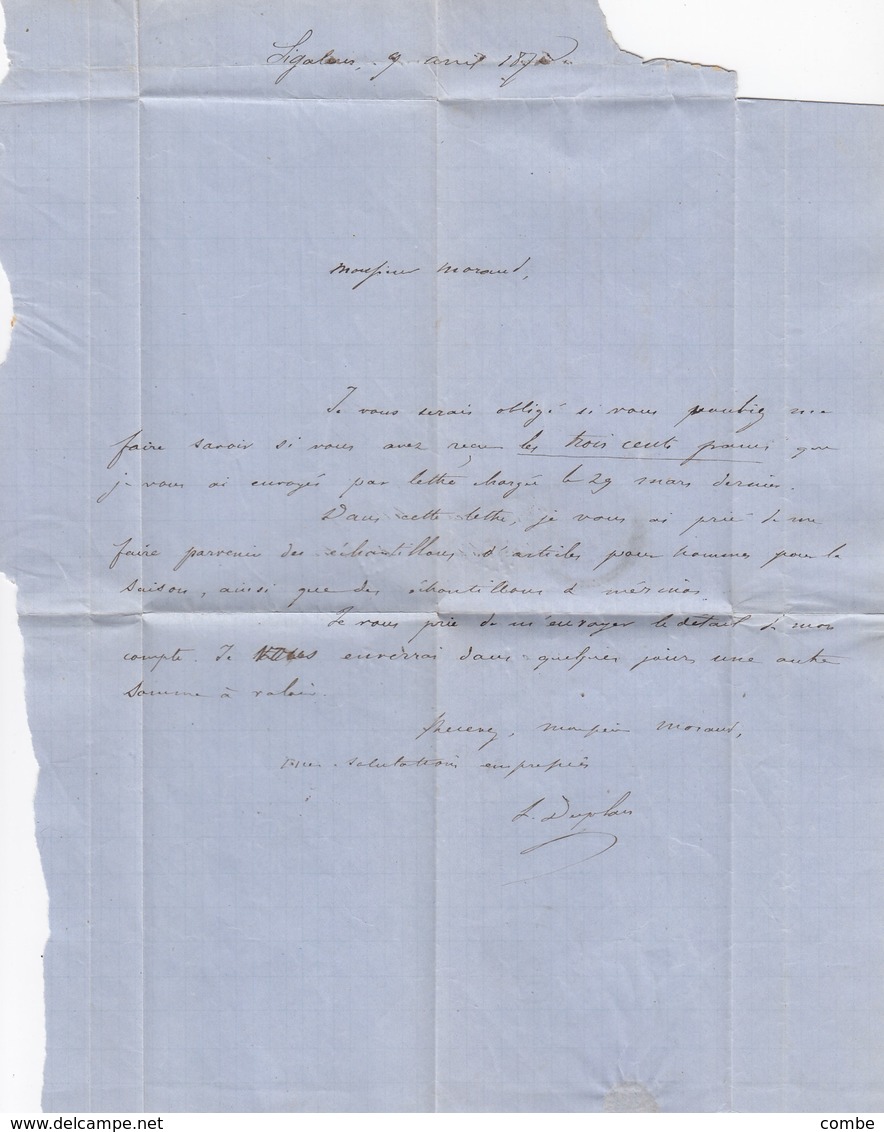 Sigoulès, 9 avril 187
Monsieur Morand,
Je vous serais obligé si vous vouliez me
faire savoir si vous avez reçu les trois cents francs que
je vous ai envoyés par lettre chargée le 29 mars dernier.
Dans cette lettre, je vous ai prié de me
faire parvenir des échantillons d'articles pour hommes pour la
saison, ainsi que des échantillons de mérinos.
Je vous prie de m'envoyer le détail de mon
compte. Je vous enverrai dans quelques jours une autre
somme à valoir.
Recevez, monsieur Morand,
mes salutations empressées
L. Duplais
delcampe.net
combe